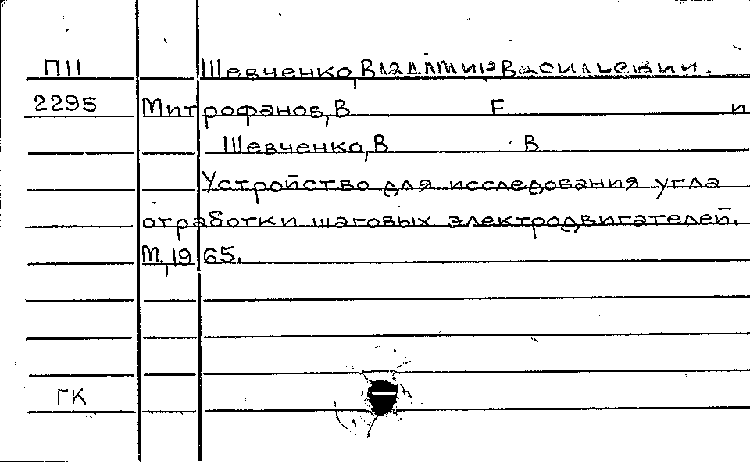 П11 Шевченко, Владимир Васильевич.
2295 Митрофанов, В Е и
Шевченко, В В
Устройство для исследования угла
отработки шаговых электродвигателей.
М, 1965.
ГК